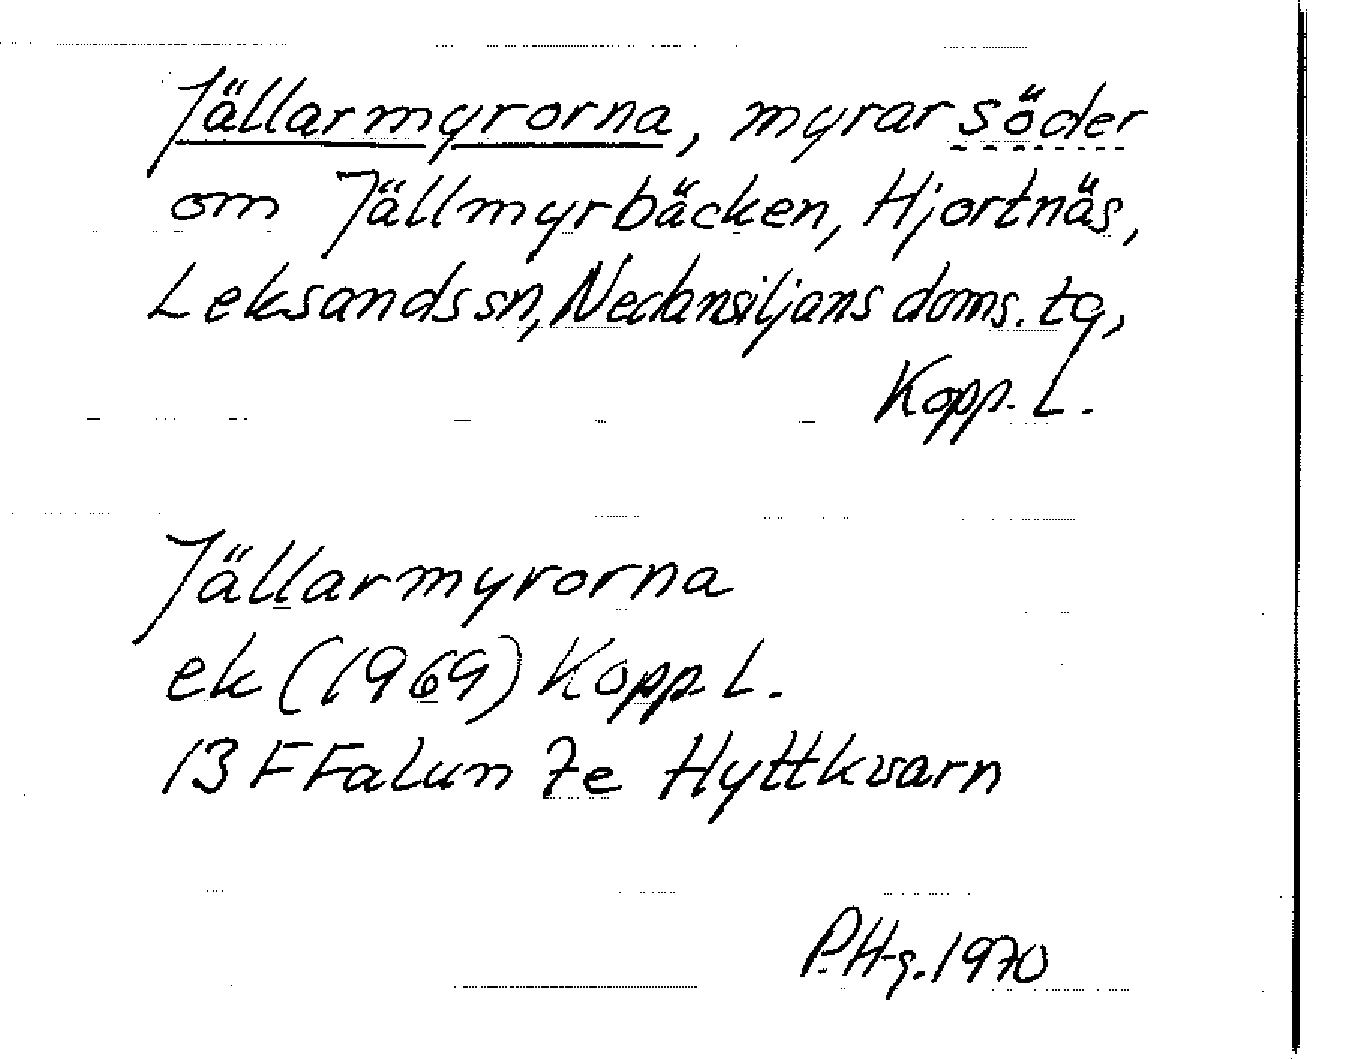 Jällarmyrorna, myrar söder
om Jällmyrbäcken, Hjortnäs,
Leksands sn, Nedansiljans doms. tg,
Kopp. L.
Jällarmyrorna
ek (1969) Kopp L.
13 F Falun 7e Hyttkvarn
P.Hg. 1970